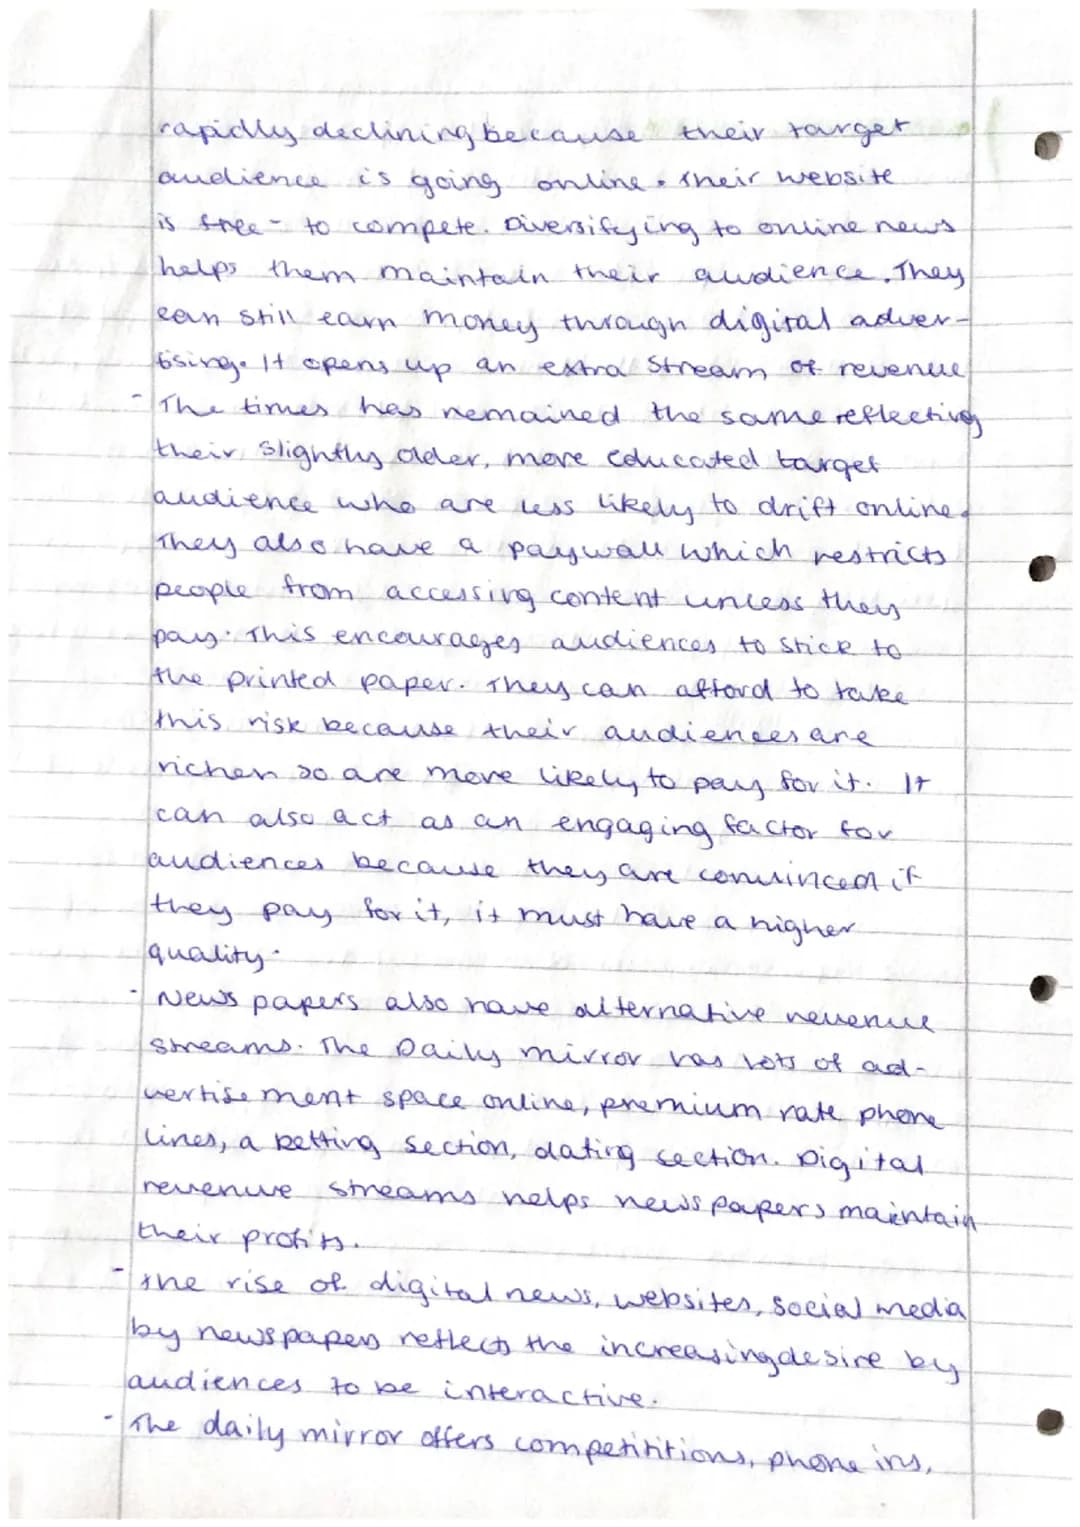 rapidly declining because their target
audience is going online. Their website
is free - to compete. Diversifying to online news
helps them maintain their audience. They
can still earn money through digital adver-
tising. It opens up an extra stream of revenue
- The times has remained the same reflecting
their slightly older, more educated target
audience who are less likely to drift online.
They also have a paywall which restricts
people from accessing content unless they
pay. This encourages audiences to stick to
the printed paper. They can afford to take
this risk because their audiences are
richer so are more likely to pay for it. It
can also act as an engaging factor for
audiences because they are convinced if
they pay for it, it must have a higher
quality.
- News papers also have alternative revenue
streams. The Daily mirror has lots of ad-
vertisement space online, premium rate phone
lines, a betting section, dating section. Digital
revenue streams helps newspapers maintain
their profits.
- The rise of digital news, websites, social media
by newspapers reflects the increasing desire by
audiences to be interactive.
- The daily mirror offers competititions, phone ins,